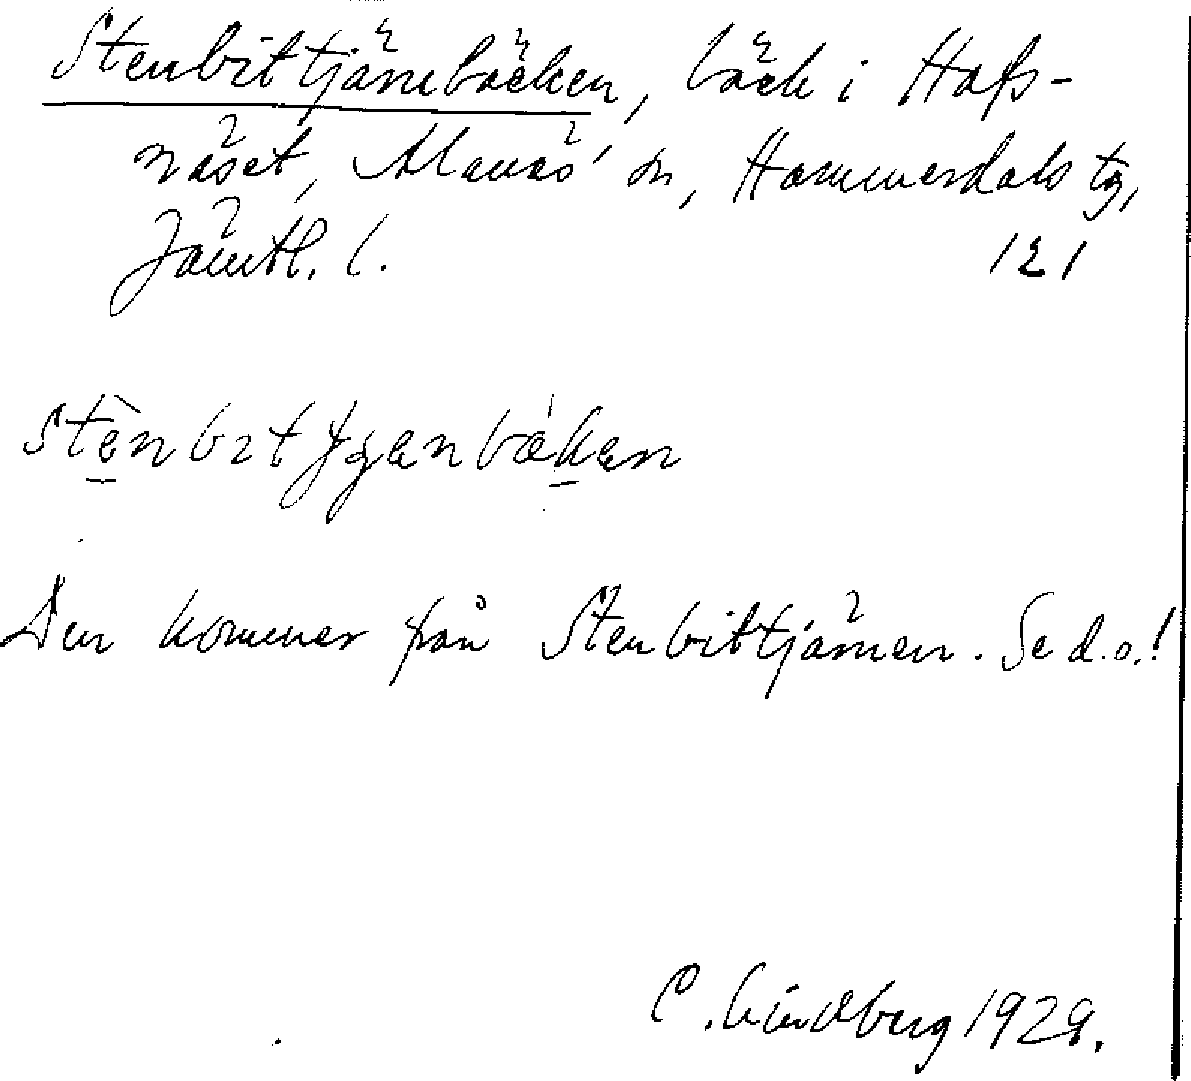 Stenbittjärnbäcken, bäck i Hafs-
näset, Alanäs sn, Hammerdals tg,
Jämtl. l. 121
Den kommer från Stenbittjärnen. Se d.o.!
C. Lindberg 1929.